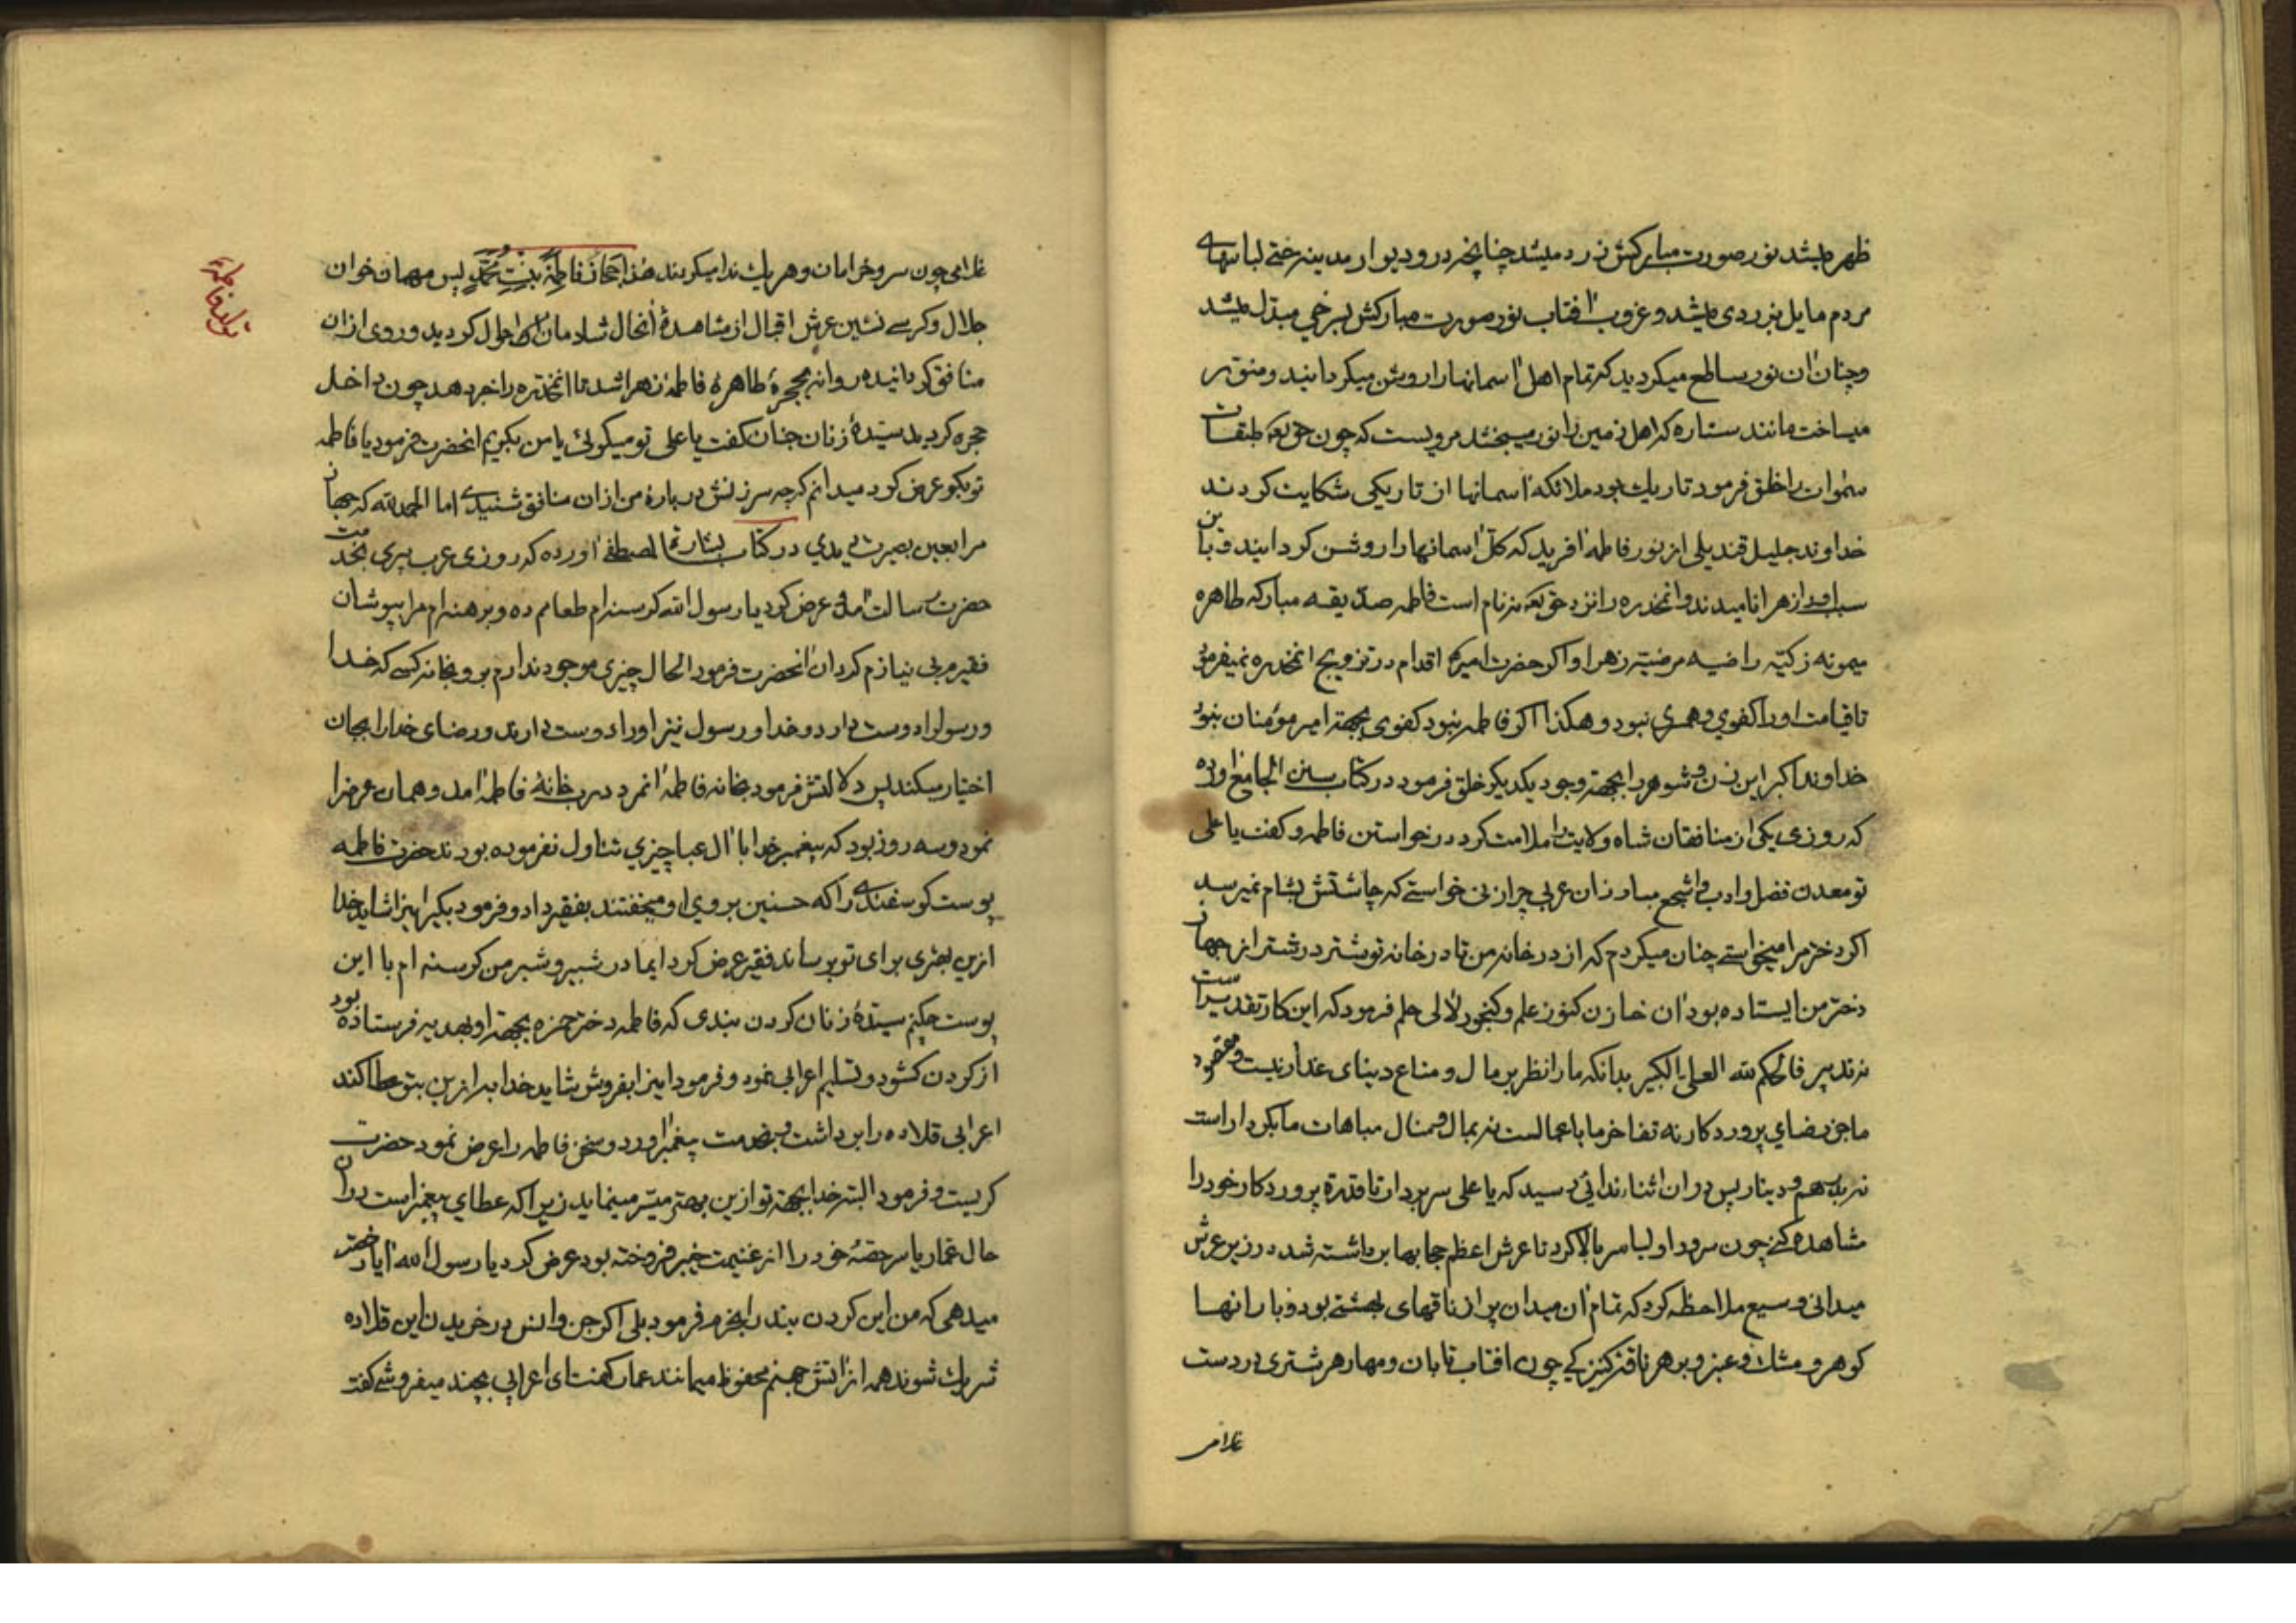 ظهر میشد نور صورت مبارکش زرد میشد چنانچه در و دیوار مدینه حتی لباسهای
مردم مایل بزردی میشد و غروب آفتاب نور صورت مبارکش بسرخی مبدل میشد
وچنان آن نور ساطع میکردید که تمام اهل آسمانها را روشن میکردانید و منور
میساخت مانند ستاره که اهل زمین را نور میبخشد مرویست که چون حقتعالی طبقات
سموات را خلق فرمود تاریك بود ملائکه آسمانها از تاریکی شکایت کردند
خداوند جلیل قندیلی از نور فاطمه آفرید که کل آسمانها را روشن کردانید و باین
سبب او را زهرا نامیدند و آنمخدره را نزد حقتعالی نه نام است فاطمه صدیقه مبارکه طاهره
میمونه زکیه راضیه مرضیه زهرا و اکر حضرت امیر اقدام در تزویج آنمخدره نمیفرمود
تا قیامت او را کفوی و همسری نبود و هکذا اکر فاطمه نبود کفوی بجهة امیر مؤمنان نبود
خداوند اکبر این زن و شوهر را بجهة وجود یکدیکر خلق فرمود در کتاب سنن الجامع آورده
که روزی یکی از منافقان شاه ولایت را ملامت کرد در خواستن فاطمه و کفت یا علی
تو معدن فضل و ادب و اشجع مبارزان عربی چرا زنی خواستے که چاشتش بشام نمیرسد
اکر دختر مرا میخواستے چنان میکردم که از در خانه من تا در خانه تو شتر در شتر از جهاز
دختر من ایستاده بود آن خازن کنوز علم و کنجور لآلی حلم فرمود که این کار تقدیر است
نه تدبیر فالحکم لله العلی الکبیر بدانکه ما را نظر بر مال و متاع دنیای غدار نیست و مقصود
ما جز رضای پروردکار نه تفاخر ما باعمالست نه بمال و منال مباهات ما بکردار است
نه بدرهم و دینار پس در آن اثنا ندائی رسید که یا علی سر بردار تا قدرة پروردکار خود را
مشاهده کنے چون سرور اولیا سر بالا کرد تا عرش اعظم حجابها برداشته شد در زیر عرش
میدانی وسیع ملاحظه کرد که تمام آن میدان پر از ناقهای بهشتے بود و بار آنها
کوهر و مشك و عنبر و بر هر ناقه کنیزکی چون آفتاب تابان و مهار هر شتری در دست
غلامی
غلامی چون سرو خرامان و هر یك ندا میکردند هذا جهاز فاطمة بنت محمد پس مهمان خوان
جلال و کرسے نشین عرش اقبال از مشاهدۀ آنحال شادمان احوال کردید و روی از آن
منافق کردانیده روانه بحجرۀ طاهرۀ فاطمه زهرا شد تا آنمخدره را خبر دهد چون داخل
حجره کردید سیدۀ زنان جنان کفت یا علی تو میکوئی یا من بکویم آنحضرت فرمود یا فاطمه
تو بکو عرض کرد میدانم کرچه سرزنش در بارۀ من از آن منافق شنیدی اما الحمدلله که جهاز
مرا بعین بصیرت دیدی در کتاب بشارة المصطفی آورده که روزی عرب پیری بخدمت
حضرت رسالت آمد و عرض کرد یا رسول الله کرسنه‌ام طعامم ده و برهنه‌ام مرا بپوشان
فقیرم بی نیازم کردان آنحضرت فرمود الحال چیزی موجود ندارم برو بخانه کسی که خدا
و رسول را دوست دارد و خدا و رسول نیز او را دوست دارند و رضای خدا را بجان
اختیار میکند پس دلالتش فرمود بخانه فاطمه آنمرد درب خانۀ فاطمه آمد و همان عرض را
نمود و سه روز بود که پیغمبر خدا با آل عبا چیزی تناول نفرموده بودند حضرت فاطمه
پوست کوسفندے را که حسنین بر روی او میخفتند بفقیر داد و فرمود بکیر این را شاید خدا
ازین بهتری برای تو برساند فقیر عرض کرد ای مادر شبیر و شبر من کرسنه ام با این
پوست چکنم سیدۀ زنان کردن بندی که فاطمه دختر حمزه بجهة او بهدیه فرستاده بود
از کردن کشود و تسلیم اعرابی نمود و فرمود این را بفروش شاید خدا به از این بتو عطا کند
اعرابی قلاده را برداشت و بخدمت پیغمبر آورد و سخن فاطمه را عرض نمود حضرت
کریست و فرمود البته خدا بجهة تو ازین بهتر میسر مینماید زیرا که عطای پیغمبر است در آن
حال عمار یاسر حصۀ خود را از غنیمت خیبر فروخته بود عرض کرد یا رسول الله آیا رخصت
میدهی که من این کردن بند را بخرم فرمود بلی اکر جن و انس در خریدن این قلاده
شریك شوند همه از آتش جهنم محفوظ میمانند عمار کفت ای اعرابی بچند میفروشے کفت